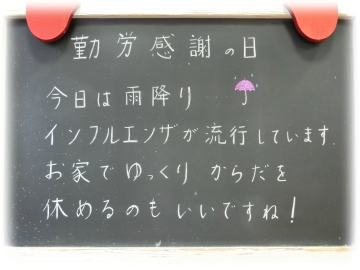 勤労感謝の日
今日は雨降り
インフルエンザが流行しています.
お家でゆっくり からだを
休めるのもいいですね!